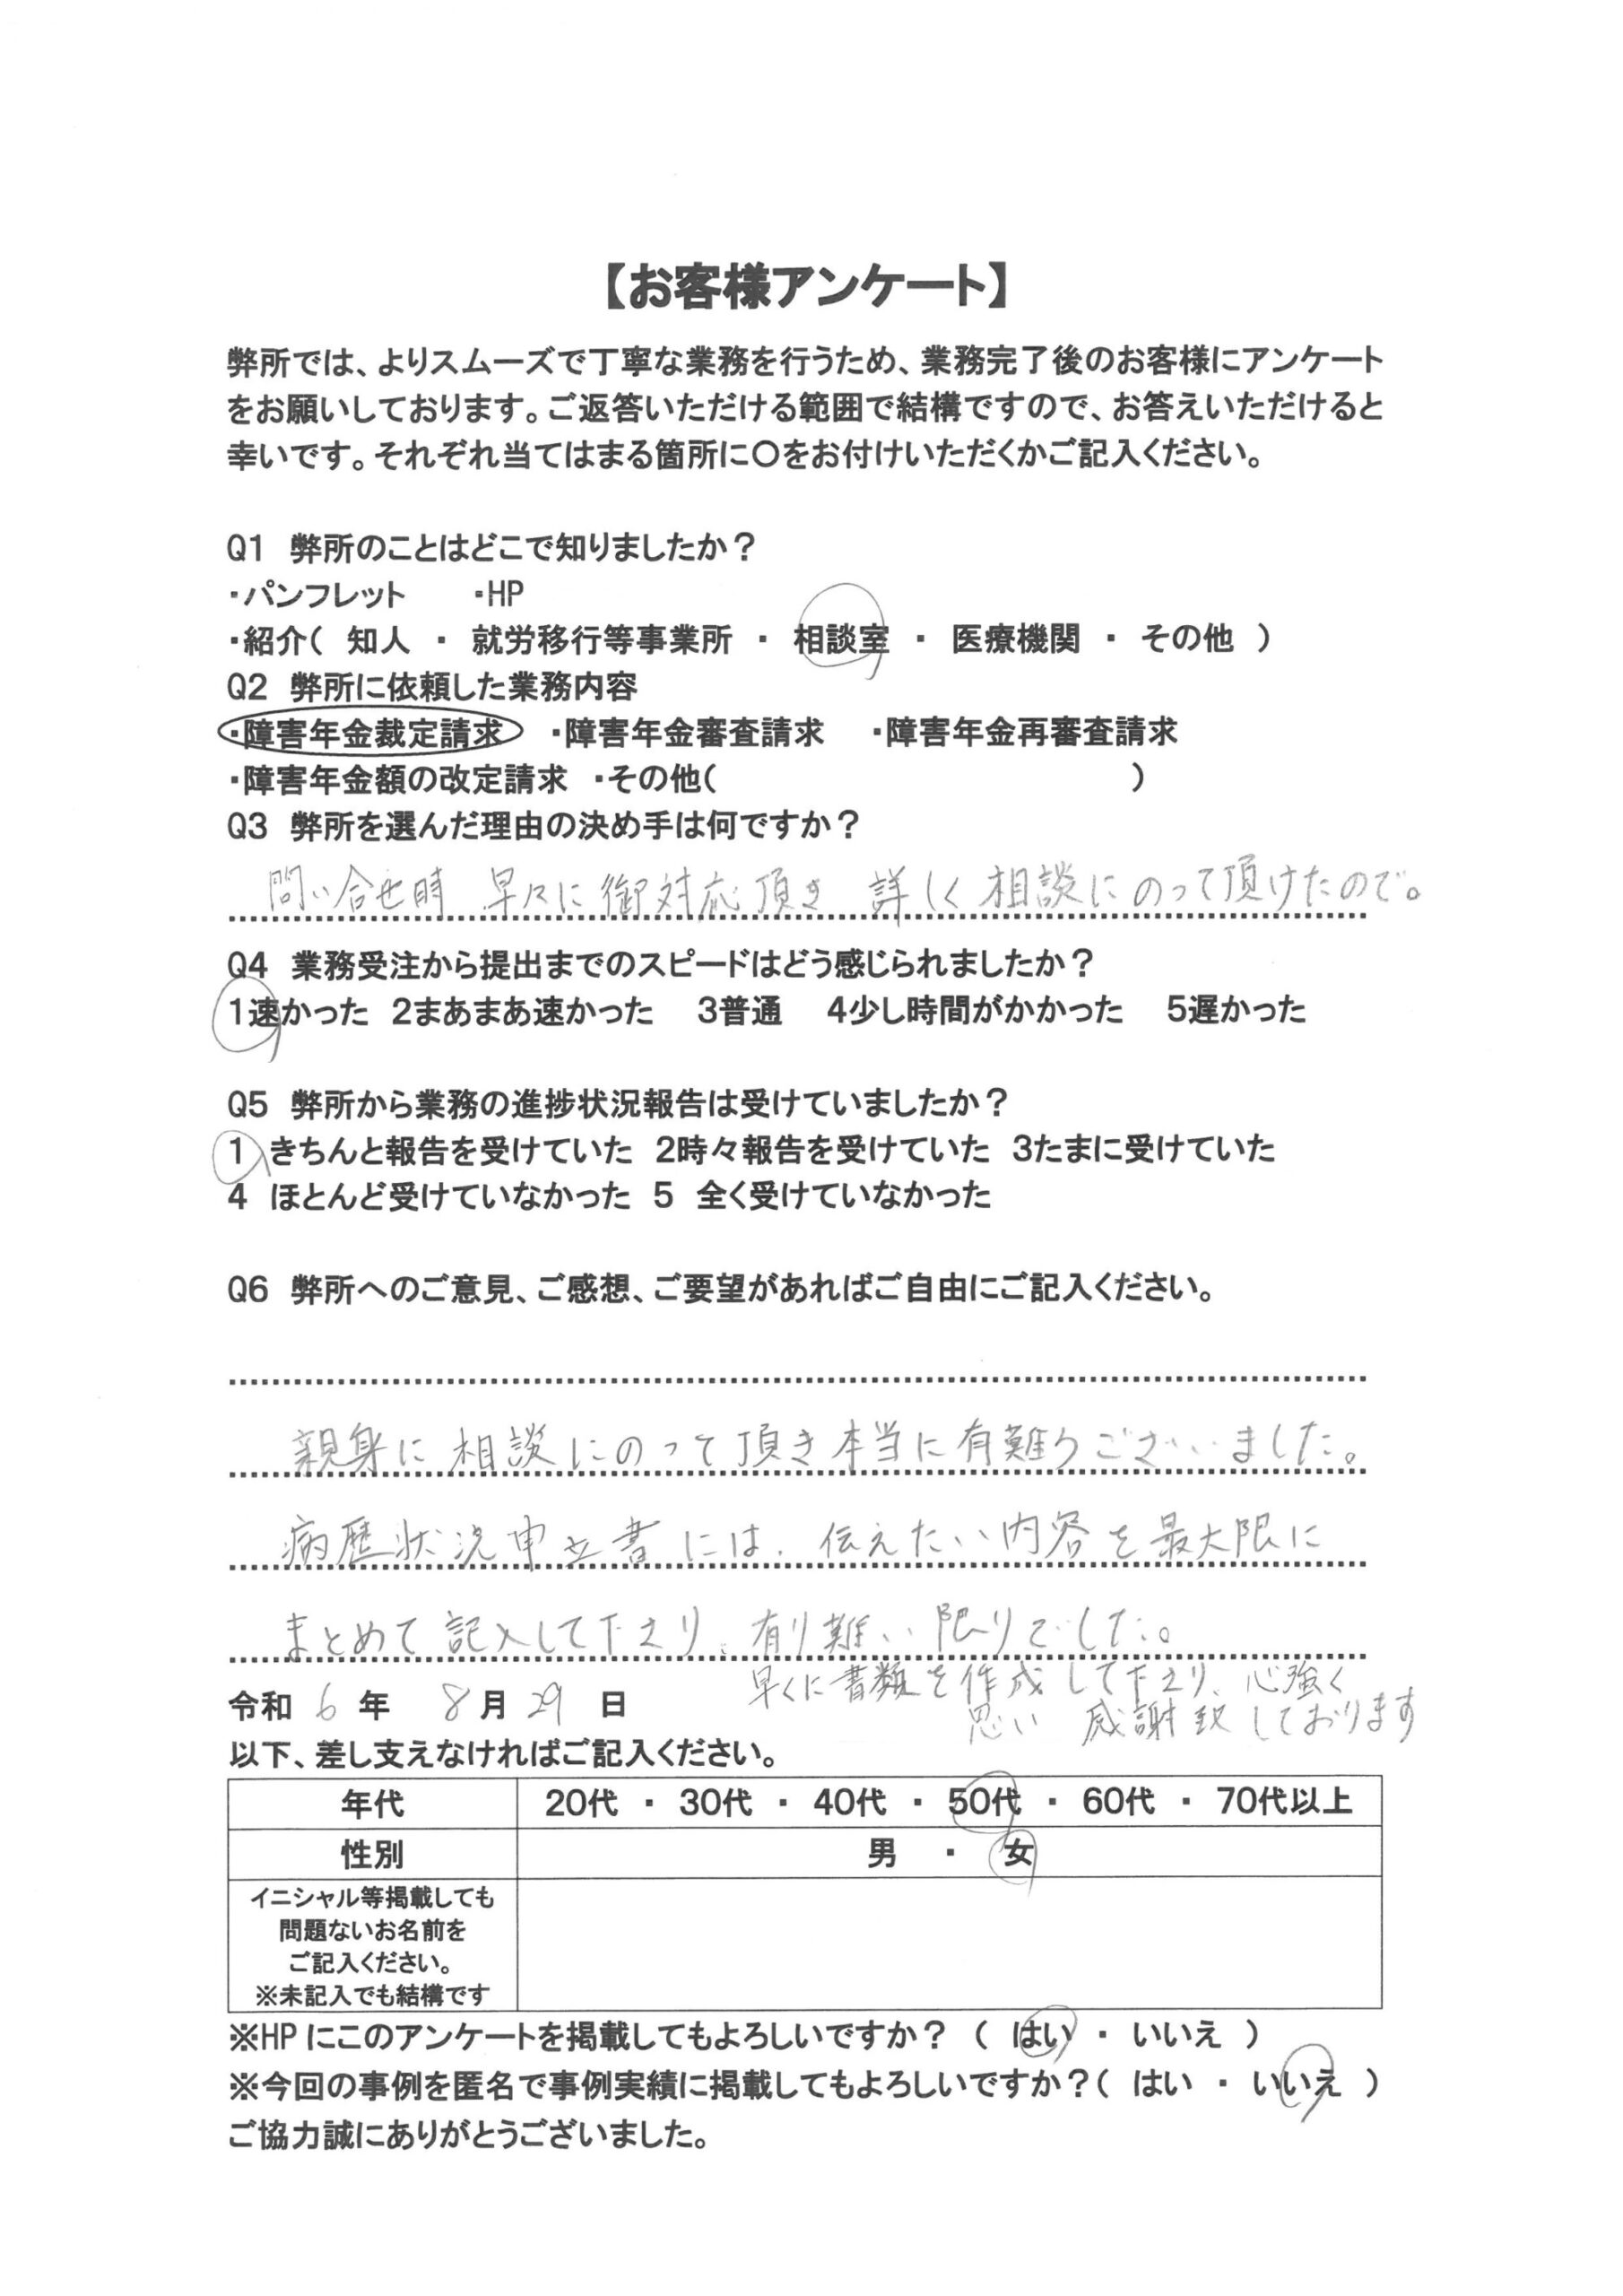 【お客様アンケート】
弊所では、よりスムーズで丁寧な業務を行うため、業務完了後のお客様にアンケート
をお願いしております。ご返答いただける範囲で結構ですので、お答えいただけると
幸いです。それぞれ当てはまる箇所に〇をお付けいただくかご記入ください。
Q1 弊所のことはどこで知りましたか？
・パンフレット ・HP
・紹介（ 知人 ・ 就労移行等事業所 ・ 相談室 ・ 医療機関 ・ その他 ）
Q2 弊所に依頼した業務内容
・障害年金裁定請求 ・障害年金審査請求 ・障害年金再審査請求
・障害年金額の改定請求 ・その他（ ）
Q3 弊所を選んだ理由の決め手は何ですか？
問い合せ時 早々に御対応頂き 詳しく相談にのって頂けたので。
Q4 業務受注から提出までのスピードはどう感じられましたか？
1速かった 2まあまあ速かった 3普通 4少し時間がかかった 5遅かった
Q5 弊所から業務の進捗状況報告は受けていましたか？
1 きちんと報告を受けていた 2時々報告を受けていた 3たまに受けていた
4 ほとんど受けていなかった 5 全く受けていなかった
Q6 弊所へのご意見、ご感想、ご要望があればご自由にご記入ください。
親身に相談にのって頂き本当に有難うございました。
病歴状況申立書には、伝えたい内容を最大限に
まとめて記入して下さり、有り難い限りでした。
早くに書類を作成して下さり、心強く
思い 感謝致しております
令和 6 年 8 月 29 日
以下、差し支えなければご記入ください。
年代 20代 ・ 30代 ・ 40代 ・ 50代 ・ 60代 ・ 70代以上
性別 男 ・ 女
イニシャル等掲載しても
問題ないお名前を
ご記入ください。
※未記入でも結構です
※HPにこのアンケートを掲載してもよろしいですか？（ はい ・ いいえ ）
※今回の事例を匿名で事例実績に掲載してもよろしいですか？（ はい ・ いいえ ）
ご協力誠にありがとうございました。